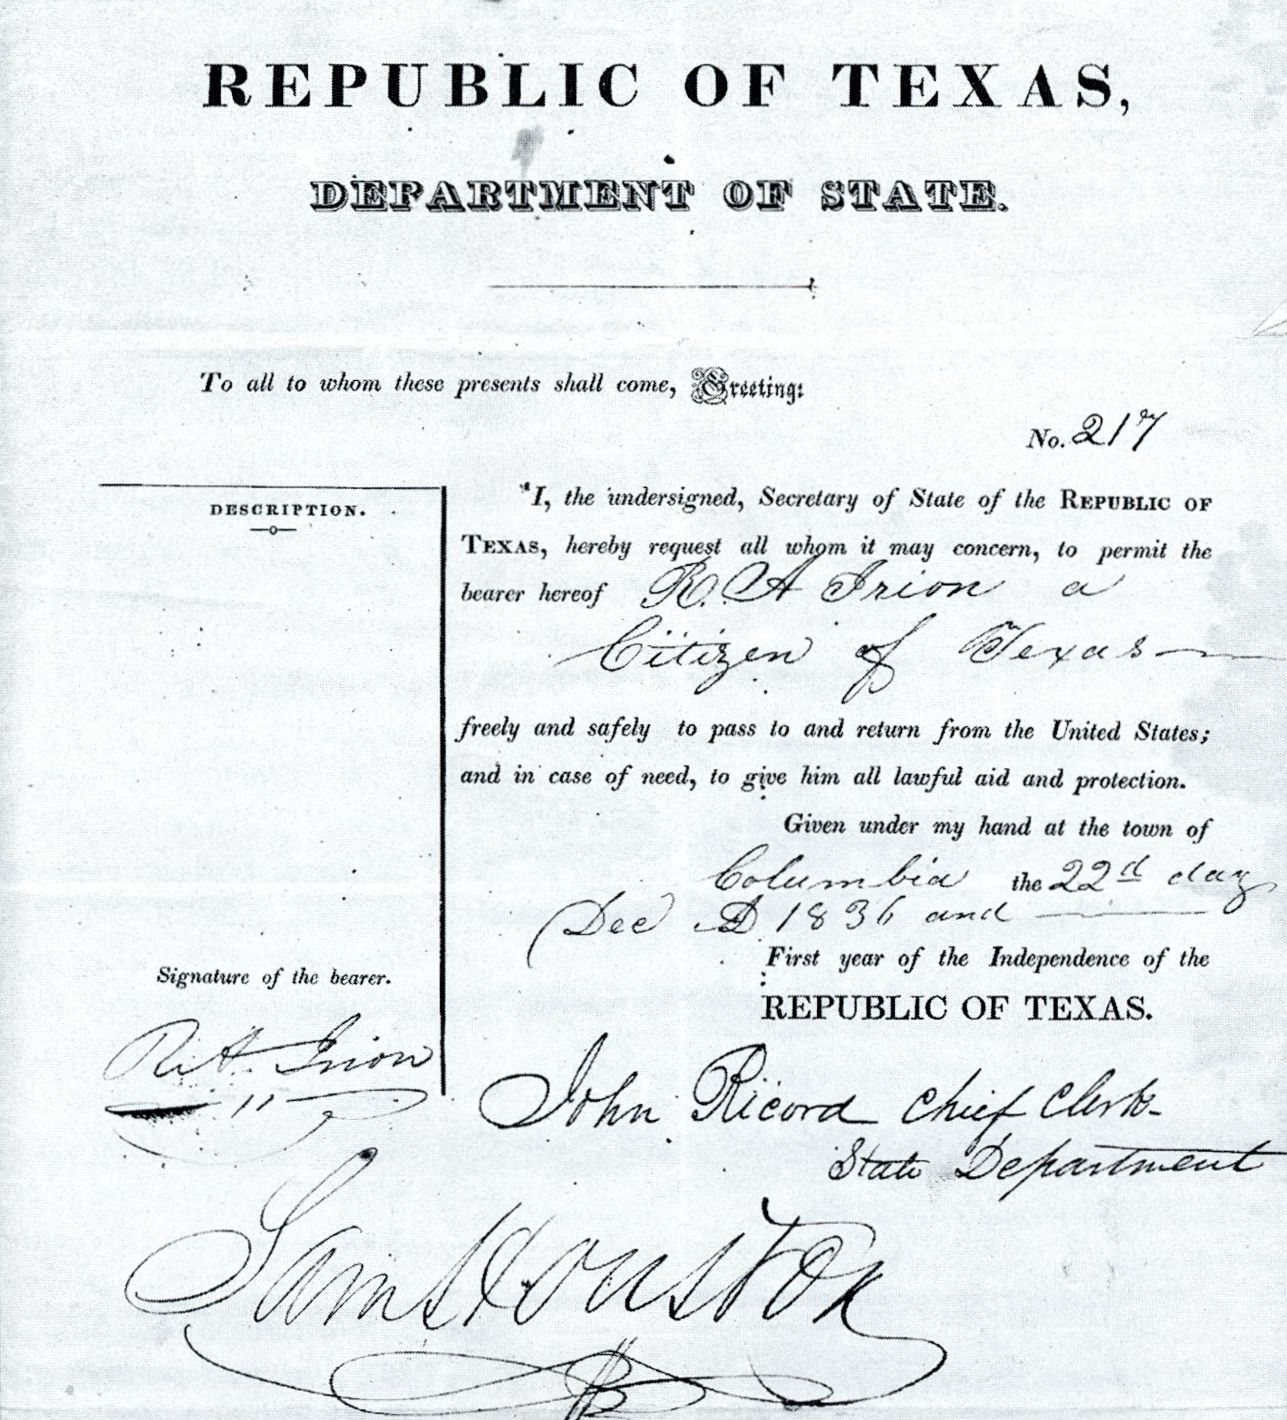 REPUBLIC OF TEXAS,
DEPARTMENT OF STATE.
To all to whom these presents shall come, Greeting:
No. 217
DESCRIPTION.
Signature of the bearer.
R. A. Irion
"I, the undersigned, Secretary of State of the REPUBLIC OF
TEXAS, hereby request all whom it may concern, to permit the
bearer hereof R. A Irion a
Citizen of Texas
freely and safely to pass to and return from the United States;
and in case of need, to give him all lawful aid and protection.
Given under my hand at the town of
Columbia the 22d day
Dec AD 1836 and
First year of the Independence of the
REPUBLIC OF TEXAS.
John Ricord Chief Clerk
State Department
Sam Houston